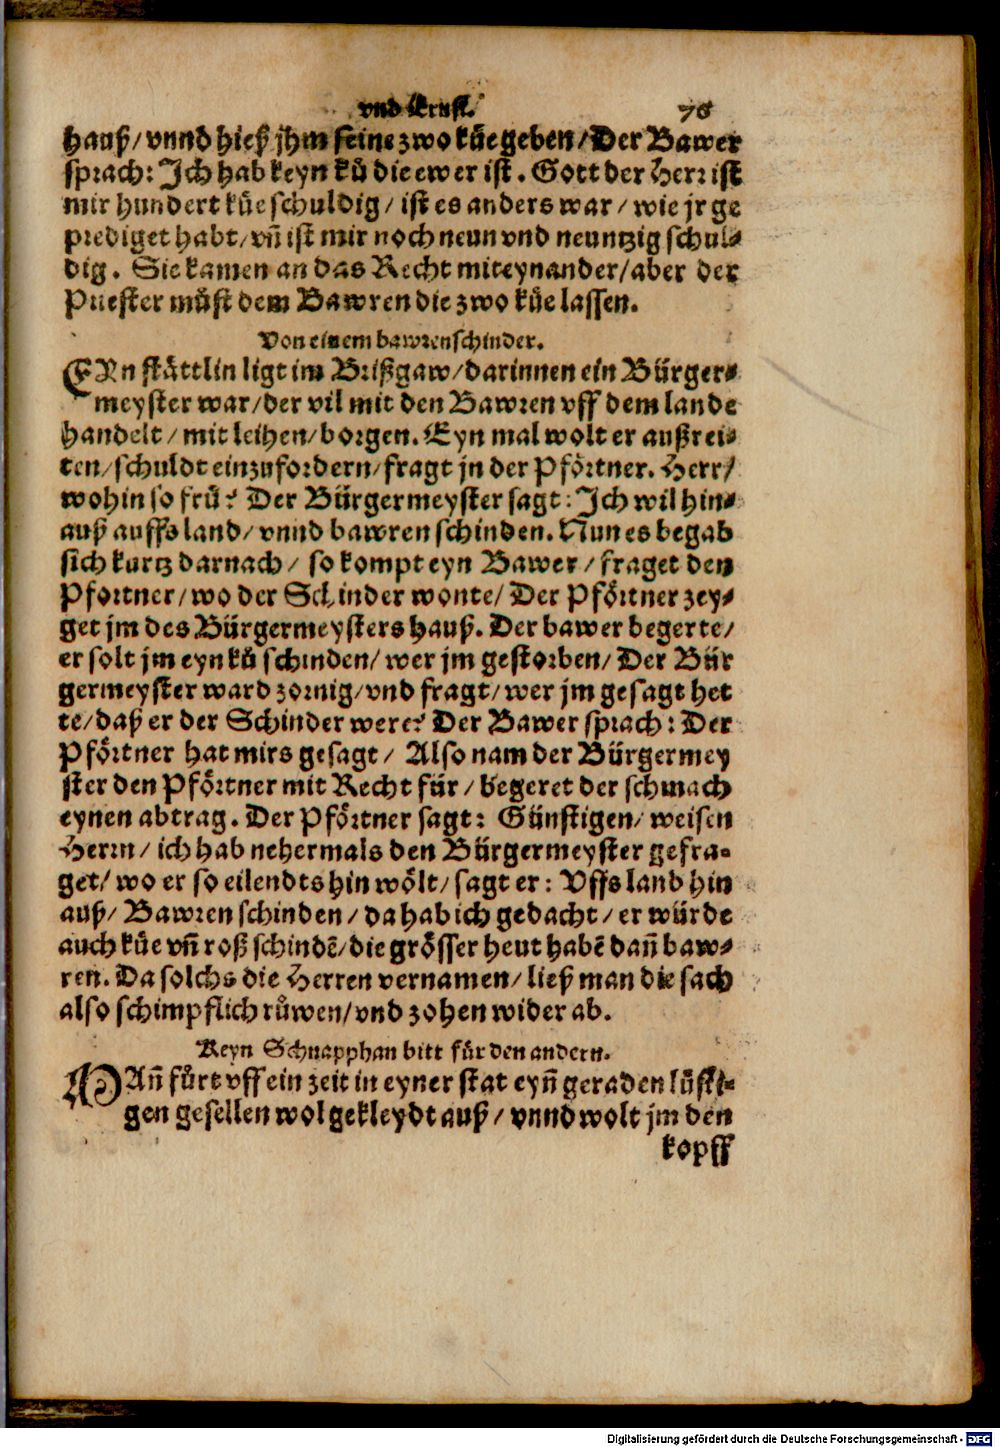 vnd Ernst. 76
hauß/vnnd hieß jhm seine zwo küe geben/Der Bawer
sprach: Ich hab keyn ků die ewer ist. Gott der Herr ist
mir hundert küe schuldig/ist es anders war/wie jr ge
prediget habt/vñ ist mir noch neun vnd neuntzig schul⸗
dig. Sie kamen an das Recht miteynander/aber der
Priester můst dem Bawren die zwo küe lassen.
Von einem bawrenschinder.
EYn stättlin ligt im Brißgaw/darinnen ein Bürger⸗
meyster war/der vil mit den Bawren vff dem lande
handelt/mit leihen/borgen. Eyn mal wolt er außrei⸗
ten/schuldt einzufordern/fragt jn der Pförtner. Herr/
wohin so frů? Der Bürgermeyster sagt: Ich wil hin⸗
auß auffs land/vnnd bawren schinden. Nun es begab
sich kurtz darnach/so kompt eyn Bawer/fraget den
Pfortner/wo der Schinder wonte/Der Pförtner zey⸗
get jm des Bürgermeysters hauß. Der bawer begerte/
er solt jm eyn ků schinden/wer jm gestorben/Der Bür
germeyster ward zornig/vnd fragt/wer jm gesagt het
te/daß er der Schinder were? Der Bawer sprach: Der
Pförtner hat mirs gesagt/Also nam der Bürgermey
ster den Pförtner mit Recht für/begeret der schmach
eynen abtrag. Der Pförtner sagt: Günstigen/weisen
Herrn/ich hab nehermals den Bürgermeyster gefra⸗
get/wo er so eilendts hin wölt/sagt er: Vffs land hin
auß/Bawren schinden/da hab ich gedacht/er würde
auch küe vñ roß schindẽ/die grösser heut habẽ dañ baw⸗
ren. Da solchs die Herren vernamen/ließ man die sach
also schimpflich růwen/vnd zohen wider ab.
Keyn Schnapphan bitt für den andern.
MAñ fůrt vff ein zeit in eyner stat eyñ geraden lüsti⸗
gen gesellen wol gekleydt auß/vnnd wolt jm den
kopff
Digitalisierung gefördert durch die Deutsche Forschungsgemeinschaft - DFG